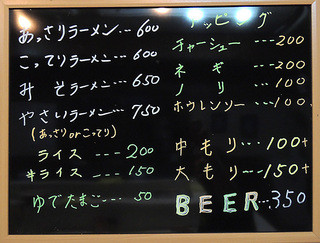 あっさりラーメン…600
こってりラーメン…600
みそラーメン…650
やさいラーメン…750
(あっさりorこってり)
ライス---200
半ライス---150
ゆでたまご---50
トッピング
チャーシュー---200
ネギ---200
ノリ---100
ホウレンソー---100
中もり---100+
大もり---150+
BEER…350